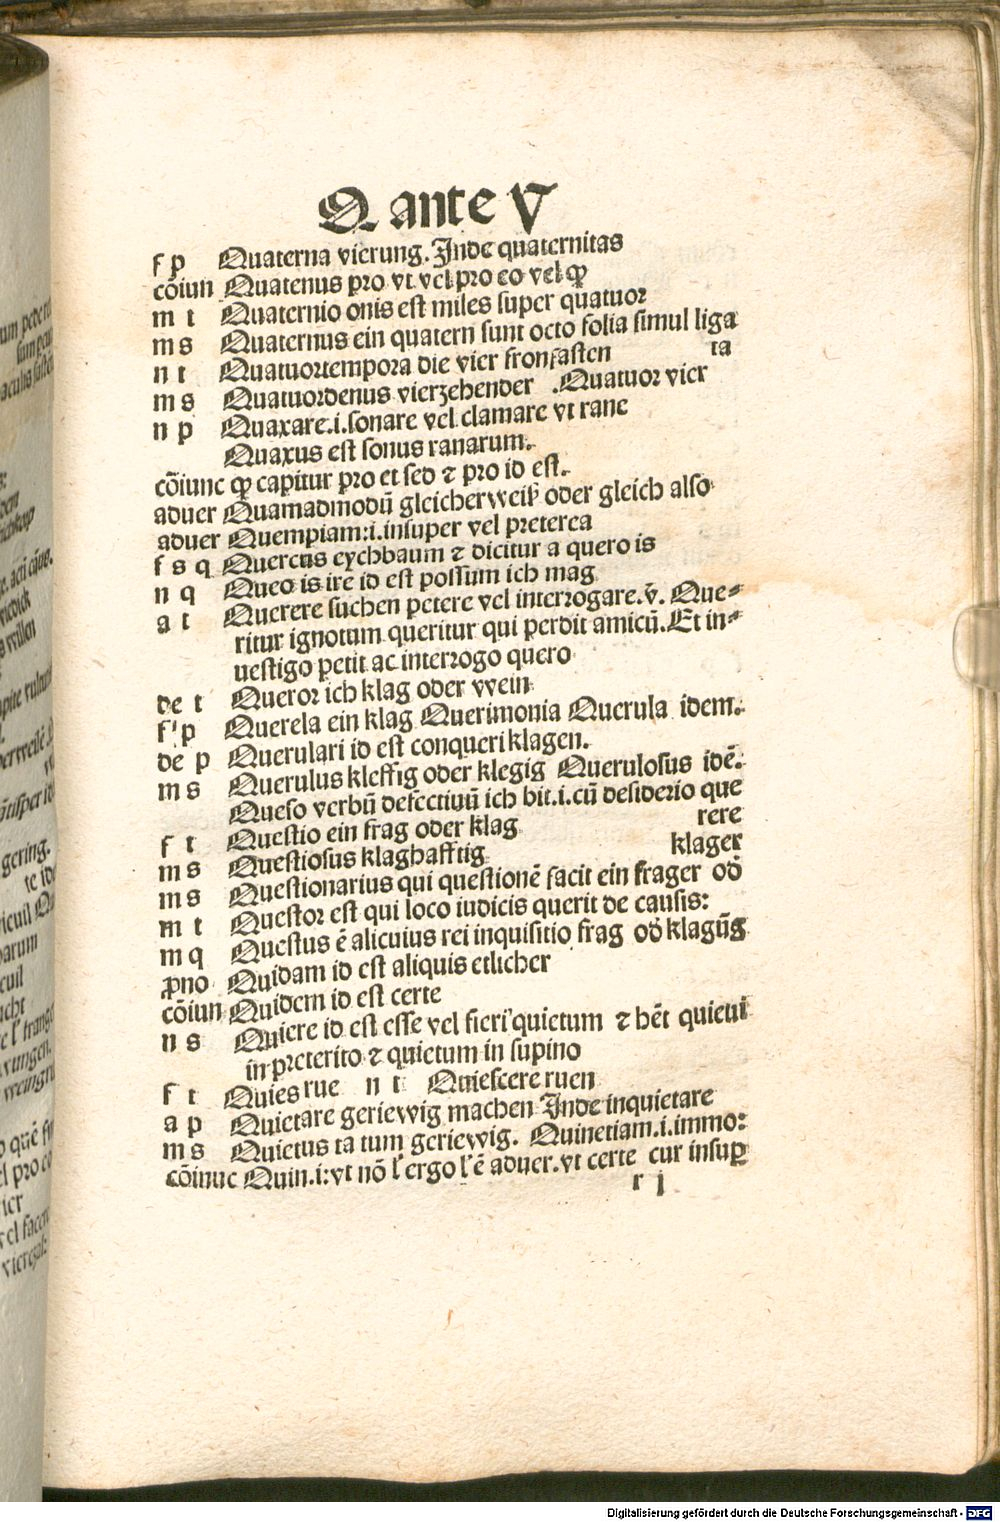 Q ante V
f p Quaterna vierung. Inde quaternitas
cōiun Quatenus pro vt vel pro eo vel ꝙ
m t Quaternio onis est miles super quatuor
m s Quaternus ein quatern sunt octo folia simul liga
n t Quatuortempora die vier fronfasten ta
m s Quatuordenus vierzehender .Quatuor vier
n p Quaxare.i.sonare vel clamare vt rane
Quaxus est sonus ranarum.
cōiunc ꝙ capitur pro et sed ⁊ pro id est.
aduer Quamadmodū gleicherweiß oder gleich also
aduer Quempiam:i.insuper vel preterea
f s q Quercus eychbaum ⁊ dicitur a quero is
n q Queo is ire id est possum ich mag
a t Querere suchen petere vel interrogare.v̄. Que⸗
ritur ignotum queritur qui perdit amicū.Et in⸗
uestigo petit ac interrogo quero
de t Queror ich klag oder wein
f p Querela ein klag Querimonia Querula idem.
de p Querulari id est conqueri klagen.
m s Querulus kleffig oder klegig Querulosus idē.
Queso verbū defectiuū ich bit.i.cū desiderio que
f t Questio ein frag oder klag rere
m s Questiosus klaghafftig klager
m s Questionarius qui questionē facit ein frager od̄
m t Questor est qui loco iudicis querit de causis:
m q Questus ē alicuius rei inquisitio frag od̄ klagūg
ꝓno Quidam id est aliquis etlicher
cōiun Quidem id est certe
n s Quiere id est esse vel fieri quietum ⁊ hēt quieui
in preterito ⁊ quietum in supino
f t Quies rue n t Quiescere ruen
a p Quietare geriewig machen Inde inquietare
m s Quietus ta tum geriewig. Quinetiam.i.immo:
cōinuc Quin.i:vt nō l' ergo l' ē aduer.vt certe cur insuꝑ
r j
Digitalisierung gefördert durch die Deutsche Forschungsgemeinschaft - DFG